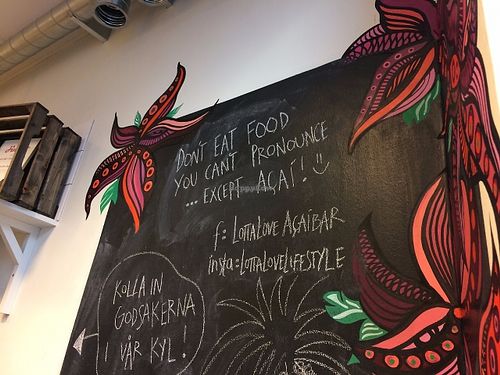 DON'T EAT FOOD
YOU CAN'T PRONOUNCE
...EXCEPT AÇAÍ! :)
f: LOTTALOVE AÇAÍBAR
insta: LOTTALOVELIFESTYLE
KOLLA IN
GODSAKERNA
I VÅR KYL!